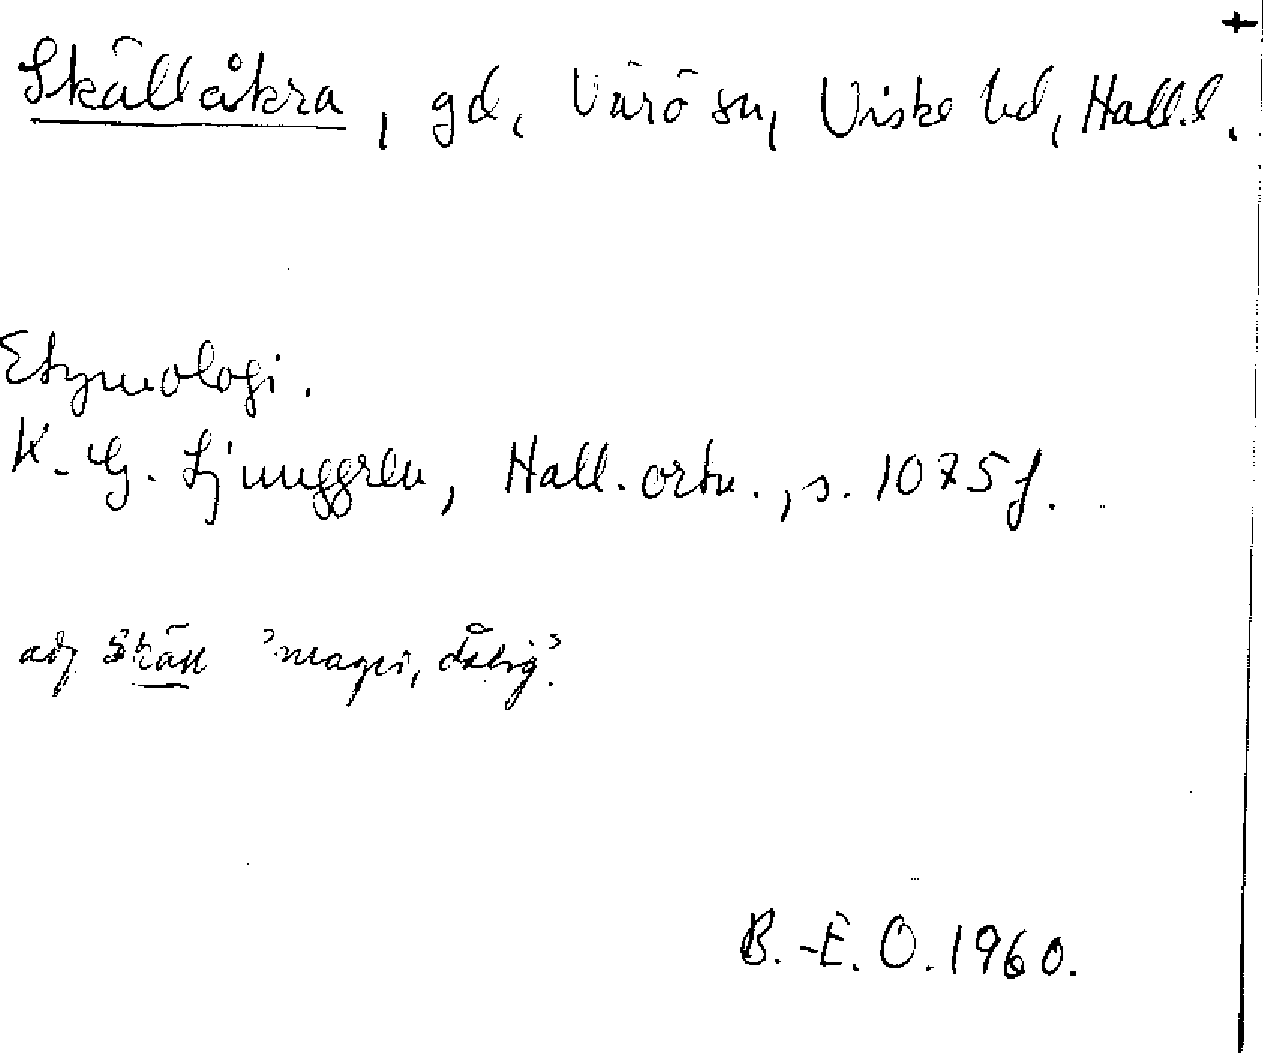 Skällåkra, gd, Värö sn, Viske hd, Hall.l.
Etymologi.
K.-G. Ljunggren, Hall. ortn., s. 107 5 f.
adj skäll 'mager, dålig'.
B.-E. O. 1960.